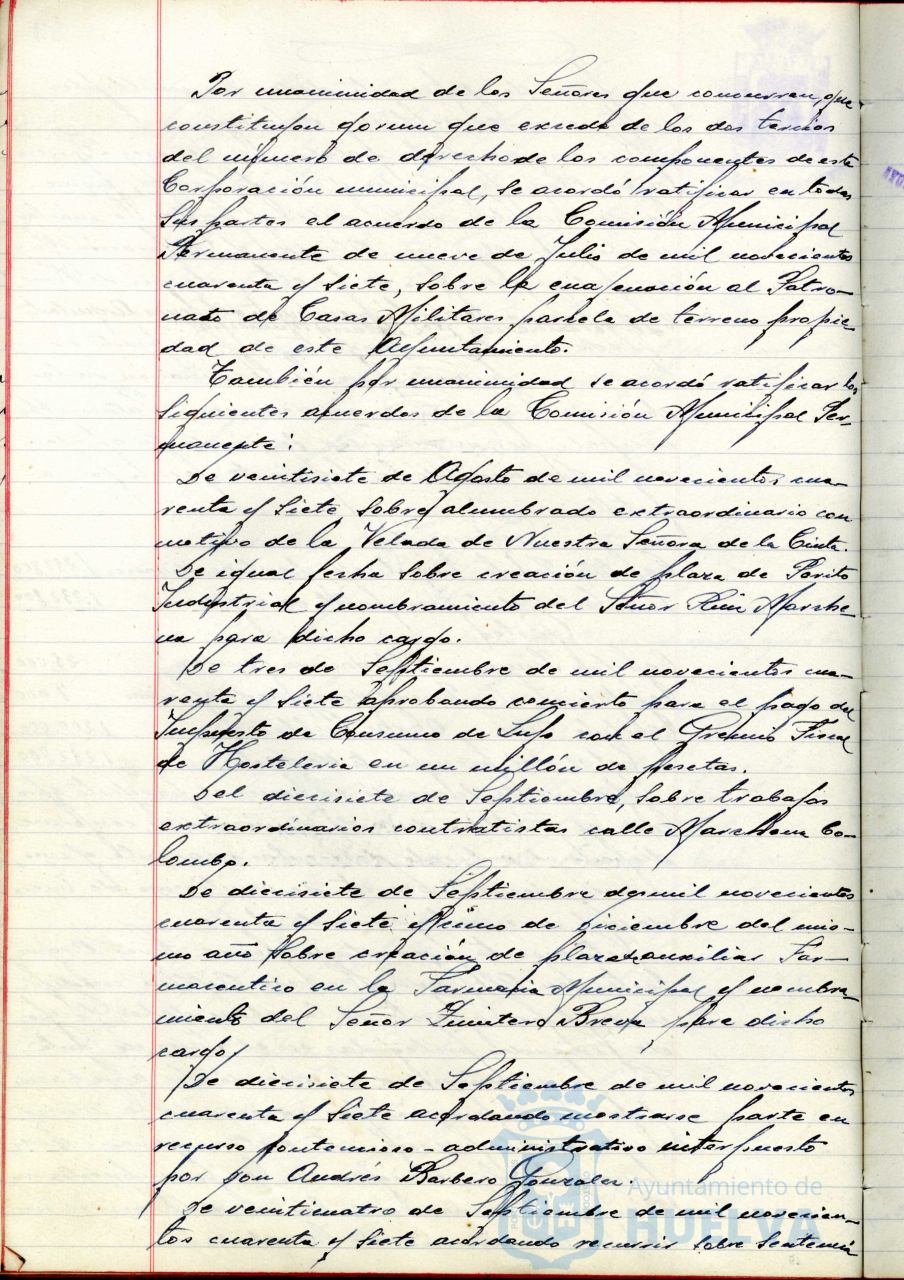 Por unanimidad de los Señores que concurren, que
constituyen qorum que excede de los dos tercios
del número de derecho de los componentes de esta
Corporación municipal, se acordó ratificar en todas
sus partes el acuerdo de la Comisión Municipal
Permanente de nueve de Julio de mil novecientos
cuarenta y siete, sobre la enajenación al Patro-
nato de Casas Militares parcela de terreno propie-
dad de este Ayuntamiento.
También por unanimidad se acordó ratificar los
siguientes acuerdos de la Comisión Municipal Per-
manente:
De veintisiete de Agosto de mil novecientos cua-
renta y siete sobre alumbrado extraordinario con
motivo de la Velada de Nuestra Señora de la Cinta.
De igual fecha sobre creación de plaza de Perito
Industrial y nombramiento del Señor Ruiz Marche-
na para dicho cargo.
De tres de Septiembre de mil novecientos cua-
renta y siete aprobando concierto para el pago del
Impuesto de Consumo de Lujo con el Gremio Fiscal
de Hosteleria en un millón de pesetas.
Del diecisiete de Septiembre, sobre trabajos
extraordinarios contratistas calle Marchena Co-
lombo.
De diecisiete de Septiembre de mil novecientos
cuarenta y siete y de diciembre del mis-
mo año sobre creación de plaza auxiliar Far-
maceutico en la Farmacia Municipal y nombra-
miento del Señor Quintero Breva para dicho
cargo.
De diecisiete de Septiembre de mil novecientos
cuarenta y siete acordando mostrarse parte en
recurso contencioso-administrativo interpuesto
por Don Andrés Barbero Gonzalez.
De veinticuatro de Septiembre de mil novecien-
tos cuarenta y siete acordando recurrir sobre sentencia
Ayuntamiento de
HUELVA